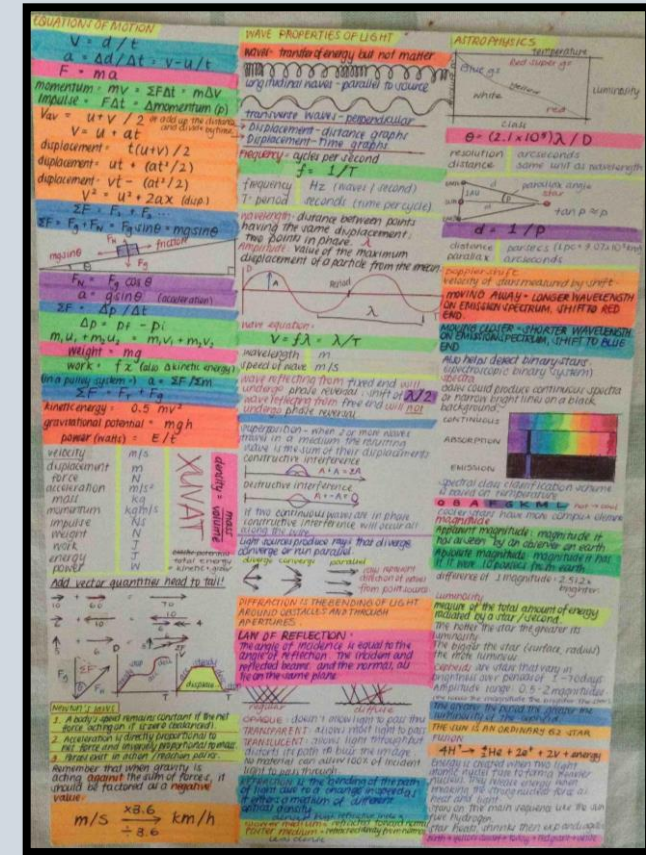 EQUATIONS OF MOTION
V = d/t
a = Δd/Δt = v-u/t
F = ma
momentum = mv = ΣFΔt = mΔv
impulse = FΔt = Δmomentum (p)
Vav = u+v/2 or add up the distance and divide by time
V = u + at
displacement = t(u+v)/2
displacement = ut + (at²/2)
displacement = vt - (at²/2)
V² = u² + 2ax (disp.)
ΣF = F₁ + F₂...
ΣF = Fg + FN = Fg sinθ = mg sinθ
FN
friction
mgsinθ
Fg
θ
FN = Fg cosθ
a = g sinθ (acceleration)
ΣF = Δp/Δt
Δp = pf - pi
m₁u₁ + m₂u₂ = m₁v₁ + m₂v₂
weight = mg
work = fx (also Δkinetic energy)
(in a pulley system) a = ΣF/Σm
kinetic energy = 0.5 mv²
gravitational potential = mgh
power (watts) = E/t
velocity m/s
displacement m
force N
acceleration m/s²
mass kg
momentum kgm/s
impulse Ns
weight N
work J
energy J
power W
XUVAT
density = mass volume
Add vector quantities head to tail!
Newton's laws
1. A body's speed remains constant if the net
force acting on it is zero (balanced).
2. Acceleration is directly proportional to
net force and inversely proportional to mass.
3. Forces exist in action/reaction pairs.
Remember that when gravity is
acting against the sum of forces, it
should be factored as a negative
value.
m/s ×3.6 ÷3.6 km/h
WAVE PROPERTIES OF LIGHT
wave - transfer of energy but not matter
longitudinal waves - parallel to source
transverse waves - perpendicular
→ Displacement-distance graphs
→ Displacement-time graphs
frequency = cycles per second
f = 1/T
frequency Hz (waves/second)
T = period seconds (time per cycle)
wavelength = distance between points
having the same displacement;
two points in phase. λ
Amplitude: value of the maximum
displacement of a particle from the mean
D
A
Period
λ
wave equation:
V = fλ = λ/T
wavelength m
speed of wave m/s
wave reflecting from fixed end will
undergo phase reversal: shift of λ/2
wave reflecting from free end will not
undergo phase reversal
superposition - when 2 or more waves
travel in a medium the resulting
wave is the sum of their displacements
constructive interference
A + A = 2A
Destructive interference
A + -A = 0
if two continuous waves are in phase
constructive interference will occur all
along the wave
Light sources produce rays that diverge,
converge or run parallel.
diverge converge parallel
rays represent
direction of waves
from point source
DIFFRACTION IS THE BENDING OF LIGHT
AROUND OBSTACLES AND THROUGH
APERTURES.
LAW OF REFLECTION:
the angle of incidence is equal to the
angle of reflection. The incident and
reflected beams, and the normal, all
lie on the same plane
regular diffuse
OPAQUE: doesn't allow light to pass thru
TRANSPARENT: allows most light to pass
TRANSLUCENT: allows light through but
distorts its path to blur the image
no material can allow 100% of incident
light to pass through
REFRACTION is the bending of the path
of light due to a change in speed as
it enters a medium of different
optical density
ASTROPHYSICS
temperature
Red super gs
Blue gs
white
yellow
red
luminosity
class
θ = (2.1×10⁵)λ/D
resolution arcseconds
distance same unit as wavelength
parallax angle
star
tan p ≈ p
d = 1/p
distance parsecs
parallax arcseconds
Doppler shift
velocity of stars measured by shift
MOVING AWAY = LONGER WAVELENGTH
ON EMISSION SPECTRUM, SHIFT TO RED
END.
MOVING CLOSER = SHORTER WAVELENGTH
ON EMISSION SPECTRUM, SHIFT TO BLUE
END
Also helps detect binary stars
(spectroscopic binary system)
spectra
gases could produce continuous spectra
or narrow bright lines on a black
background.
CONTINUOUS
ABSORPTION
EMISSION
spectral class classification scheme
is based on temperature
O B A F G K M L
cooler stars have more complex elements
magnitude
Apparent magnitude: magnitude it
has as seen by an observer on earth
Absolute magnitude: magnitude it has
if it were 10 parsecs from earth
difference of 1 magnitude = 2.512×
brighter.
Luminosity
measure of the total amount of energy
radiated by a star/second.
The hotter the star the greater its
luminosity
The bigger the star (surface, radius)
the more luminous
Cepheids are stars that vary in
brightness over periods of 1-70 days
Amplitude range: 0.5-2 magnitudes
THE SUN IS AN ORDINARY G2 STAR
Fusion
4H → ⁴₂He + 2e⁺ + 2v + energy
Energy is created when two light
atomic nuclei fuse to form a heavier
heat and light
stars on the main sequence like the sun
fuse hydrogen